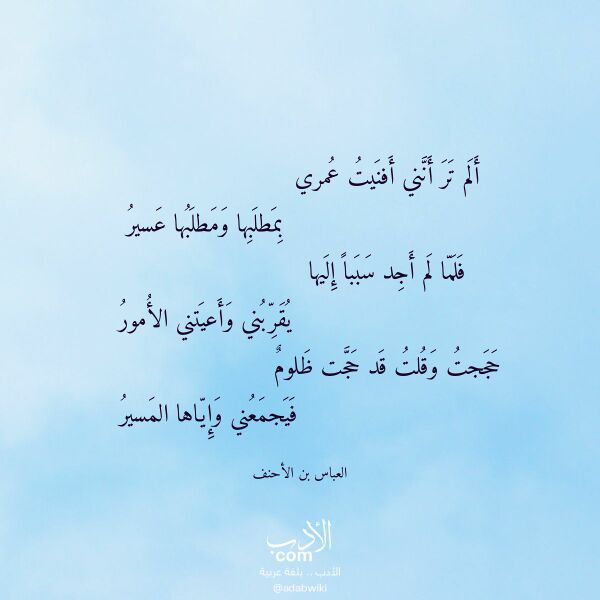 أَلَم تَرَ أَنَّني أَفنَيتُ عُمري
بِمَطلَبِها وَمَطلَبُها عَسيرُ
فَلَمّا لَم أَجِد سَبَباً إِلَيها
يُقَرِّبُني وَأَعيَتني الأُمورُ
حَجَجتُ وَقُلتُ قَد حَجَّت ظَلومٌ
فَيَجمَعُني وَإِيّاها المَسيرُ
العباس بن الأحنف
الأدب
com
الأدب .. بلغة عربية
@adabwiki